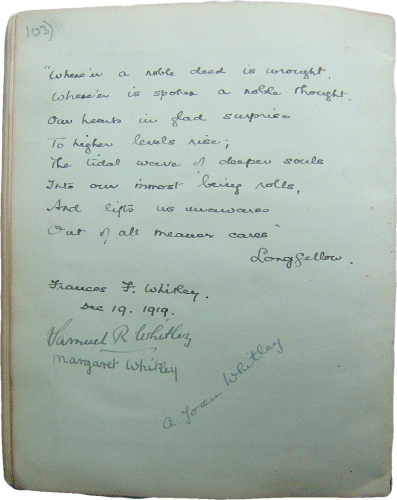 103)
"Where'er a noble deed is wrought,
Where'er is spoken a noble thought.
Our hearts in glad surprise
To higher levels rise;
The tidal wave of deeper souls
Into our inmost being rolls,
And lifts us unawares
Out of all meaner cares"
Longfellow.
Frances F. Whitley.
Dec 19. 1919.
Samuel R Whitley
Margaret Whitley
A. Joan Whitley